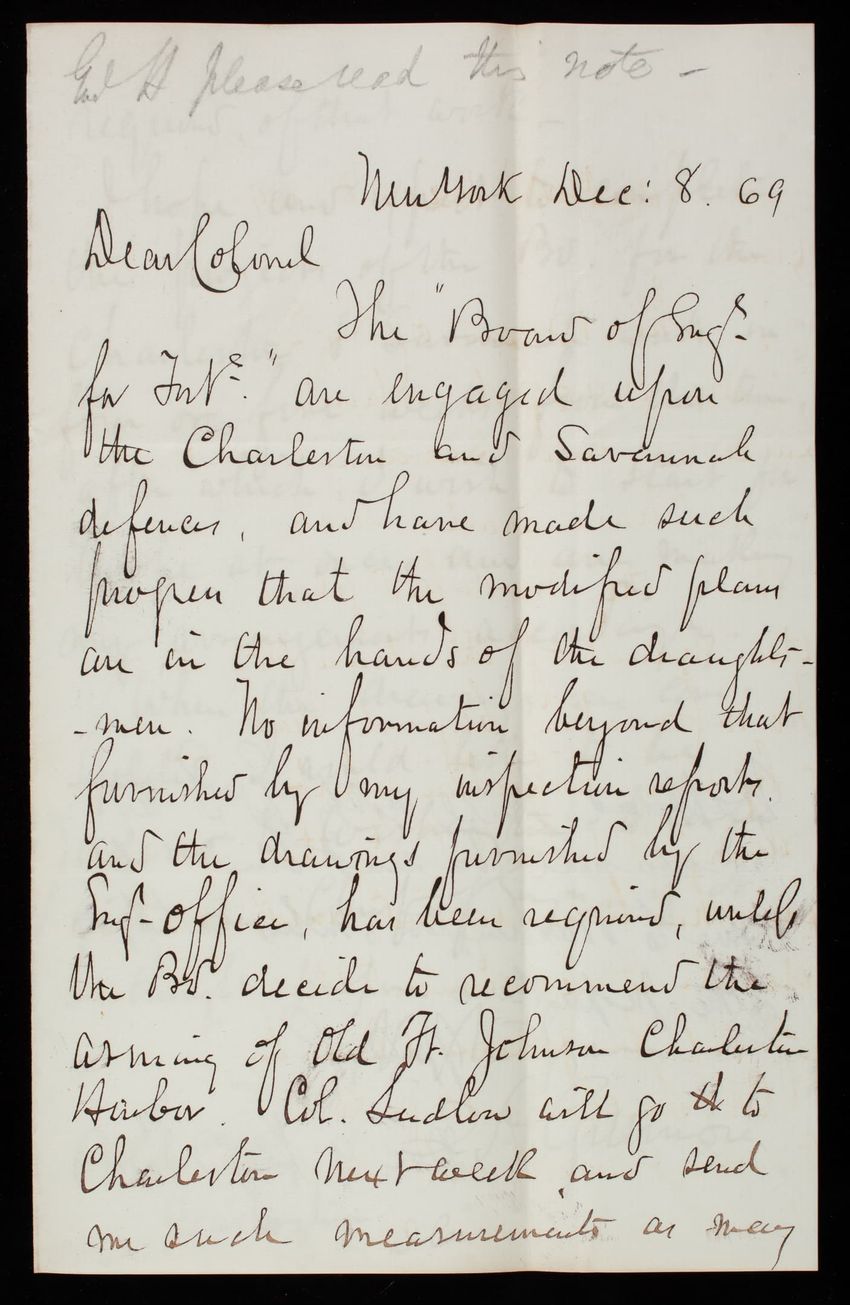 Genl H please read this note -
New York Dec: 8. 69
Dear Colonel
The "Board of Engrs
for Forts." are engaged upon
the Charleston and Savannah
defences, and have made such
progress that the modified plans
are in the hands of the draughts-
-men. No information beyond that
furnished by my inspection reports.
and the drawings furnished by the
Engr office, has been required, until
the Bd. decide to recommend the
arming of Old Ft. Johnson Charleston
Harbor. Col. Ludlow will go to
Charleston next week, and send
me such measurements as may